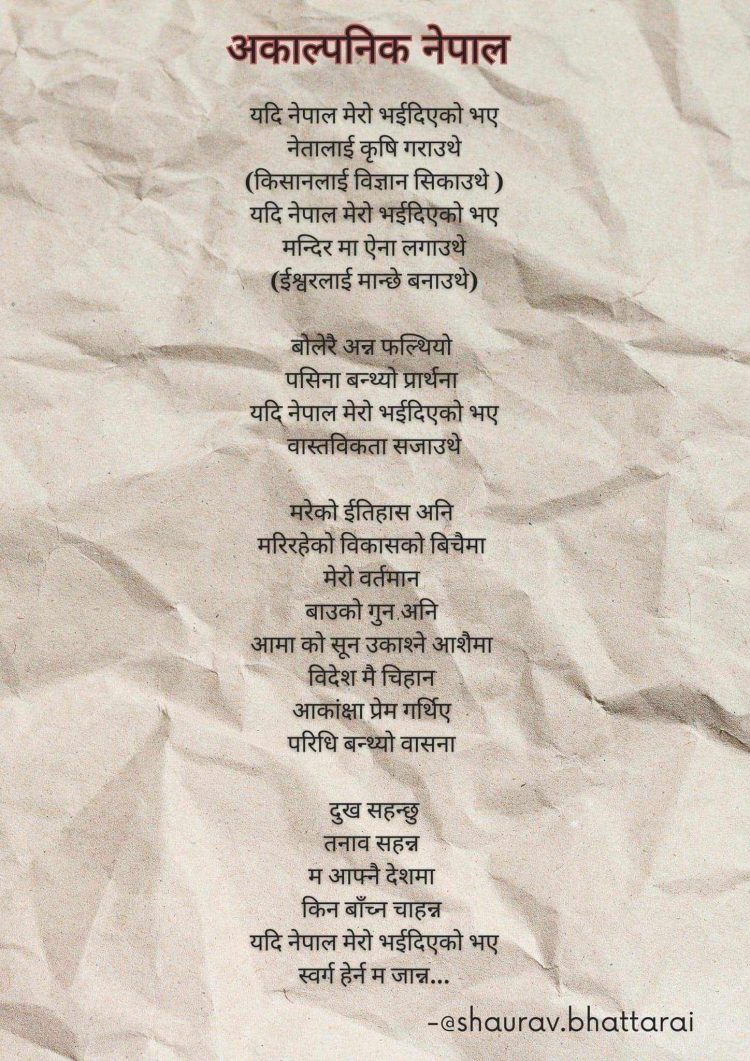 अकाल्पनिक नेपाल
यदि नेपाल मेरो भईदिएको भए
नेतालाई कृषि गराउथे
(किसानलाई विज्ञान सिकाउथे )
यदि नेपाल मेरो भईदिएको भए
मन्दिर मा ऐना लगाउथे
(ईश्वरलाई मान्छे बनाउथे)
बोलेरै अन्न फल्थियो
पसिना बन्थ्यो प्रार्थना
यदि नेपाल मेरो भईदिएको भए
वास्तविकता सजाउथे
मरेको ईतिहास अनि
मरिरहेको विकासको बिचैमा
मेरो वर्तमान
बाउको गुन अनि
आमा को सून उकाश्ने आशैमा
विदेश मै चिहान
आकांक्षा प्रेम गर्थिए
परिधि बन्थ्यो वासना
दुख सहन्छु
तनाव सहन्न
म आफ्नै देशमा
किन बाँच्न चाहन्न
यदि नेपाल मेरो भईदिएको भए
स्वर्ग हेर्न म जान्न...
-@shaurav.bhattarai